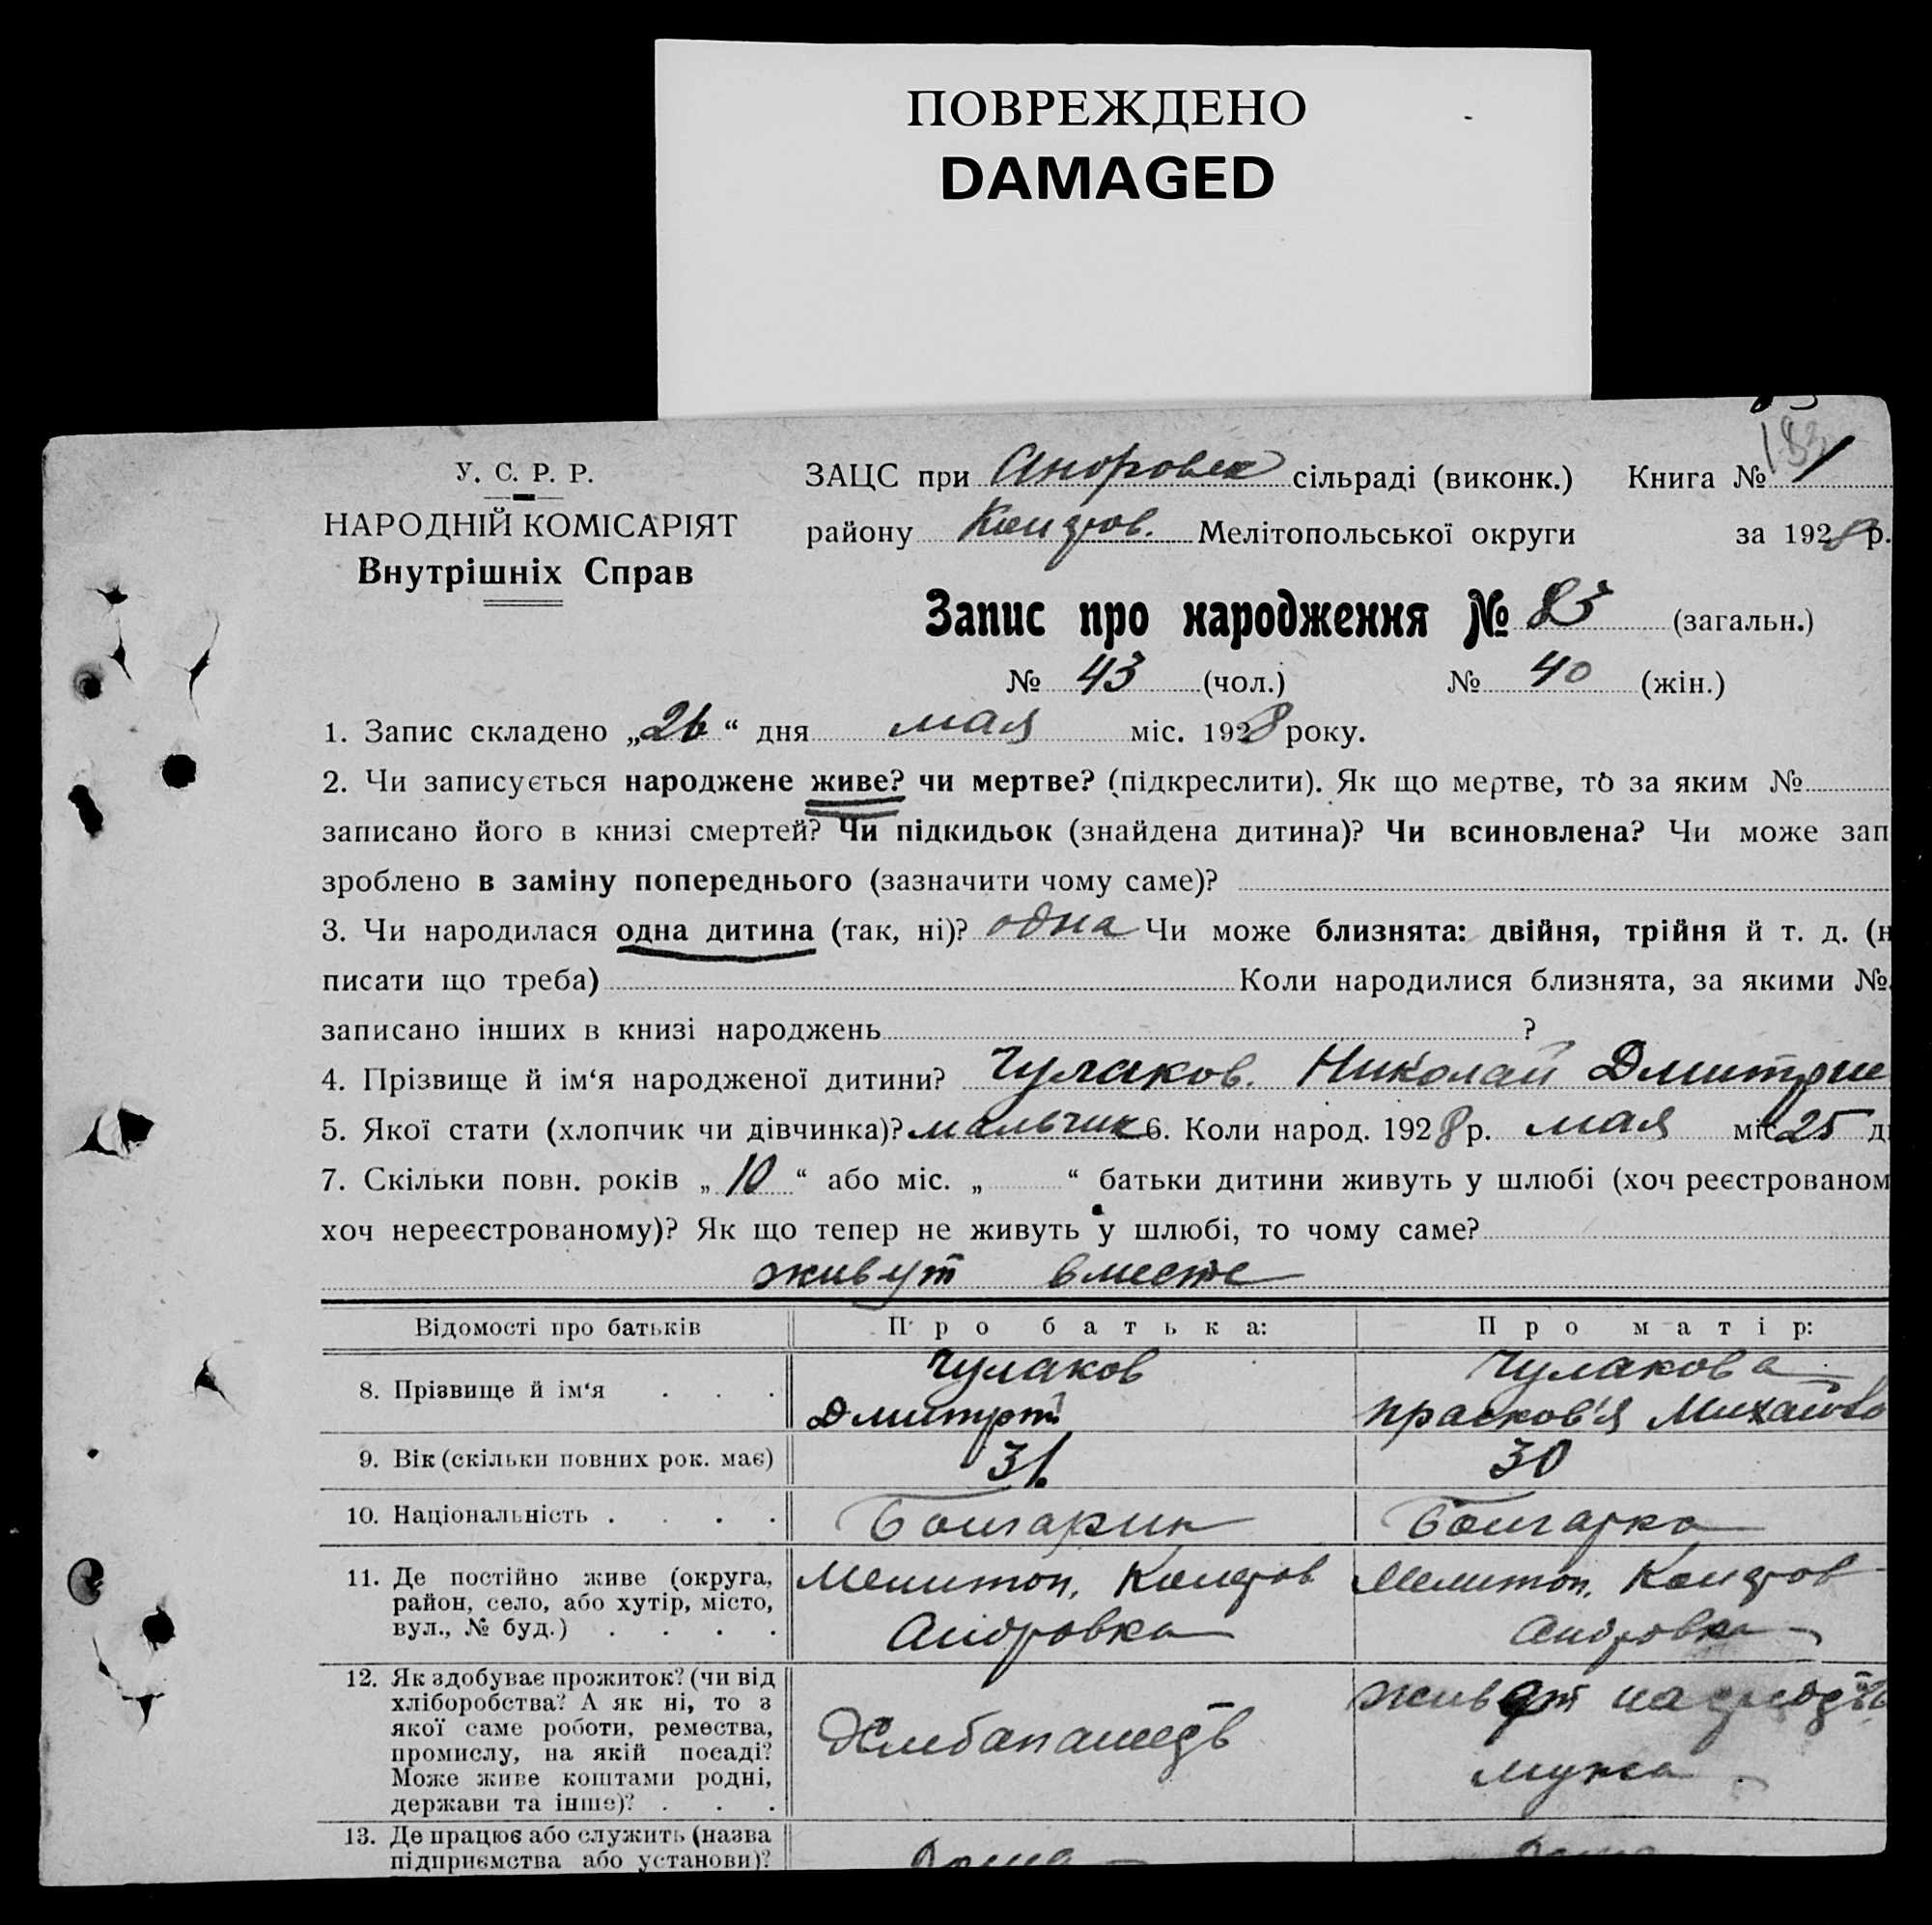 ПОВРЕЖДЕНО
DAMAGED
У. С. Р. Р.
НАРОДНІЙ КОМІСАРІЯТ
Внутрішніх Справ
ЗАЦС при Андровск сільраді (виконк.) Книга № 1
183
району Мелітопольської округи за 1928 р.
Запис про народження № 83 (загальн.)
№ 43 (чол.) № 40 (жін.)
1. Запис складено „26“ дня мая міс. 1928 року.
2. Чи записується народжене живе? чи мертве? (підкреслити). Як що мертве, то за яким №
записано його в книзі смертей? Чи підкидьок (знайдена дитина)? Чи всиновлена? Чи може зап
зроблено в заміну попереднього (зазначити чому саме)?
3. Чи народилася одна дитина (так, ні)? одна Чи може близнята: двійня, трійня й т. д. (н
писати що треба) Коли народилися близнята, за якими №
записано інших в книзі народжень ?
4. Прізвище й ім‘я народженої дитини? Чулаков. Николай Дмитрие
5. Якої стати (хлопчик чи дівчинка)? мальчик 6. Коли народ. 1928 р. мая міс. 25 д
7. Скільки повн. років „10“ або міс. „ “ батьки дитини живуть у шлюбі (хоч реєстрованом
хоч нереєстрованому)? Як що тепер не живуть у шлюбі, то чому саме?
живут вместе
Відомості про батьків Про батька: Про матір:
8. Прізвище й ім‘я . . . Чулаков Чулакова
Дмитрий Прасков'я Михайло
9. Вік (скільки повних рок. має) 31 30
10. Національність . . . . Болгарин Болгарка
11. Де постійно живе (округа, Мелитоп. Мелитоп.
район, село, або хутір, місто, Андровка Андровка
вул., № буд.) . . . .
12. Як здобуває прожиток? (чи від живет на
хліборобства? А як ні, то з
якої саме роботи, ремества,
промислу, на якій посаді? мужа
Може живе коштами родні,
держави та інше)? . . .
13. Де працює або служить (назва
підприємства або установи)? Дома